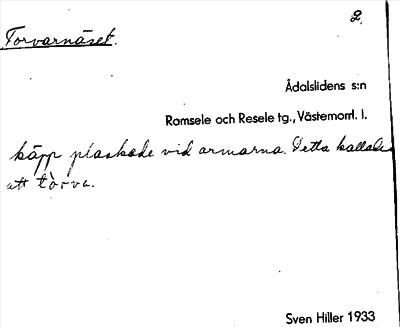 2.
Torvarnäset.
Ådalslidens s:n
Ramsele och Resele tg., Västernorrl. l.
käpp plaskade vid armarna. Detta kallades
att tòrva.
Sven Hiller 1933